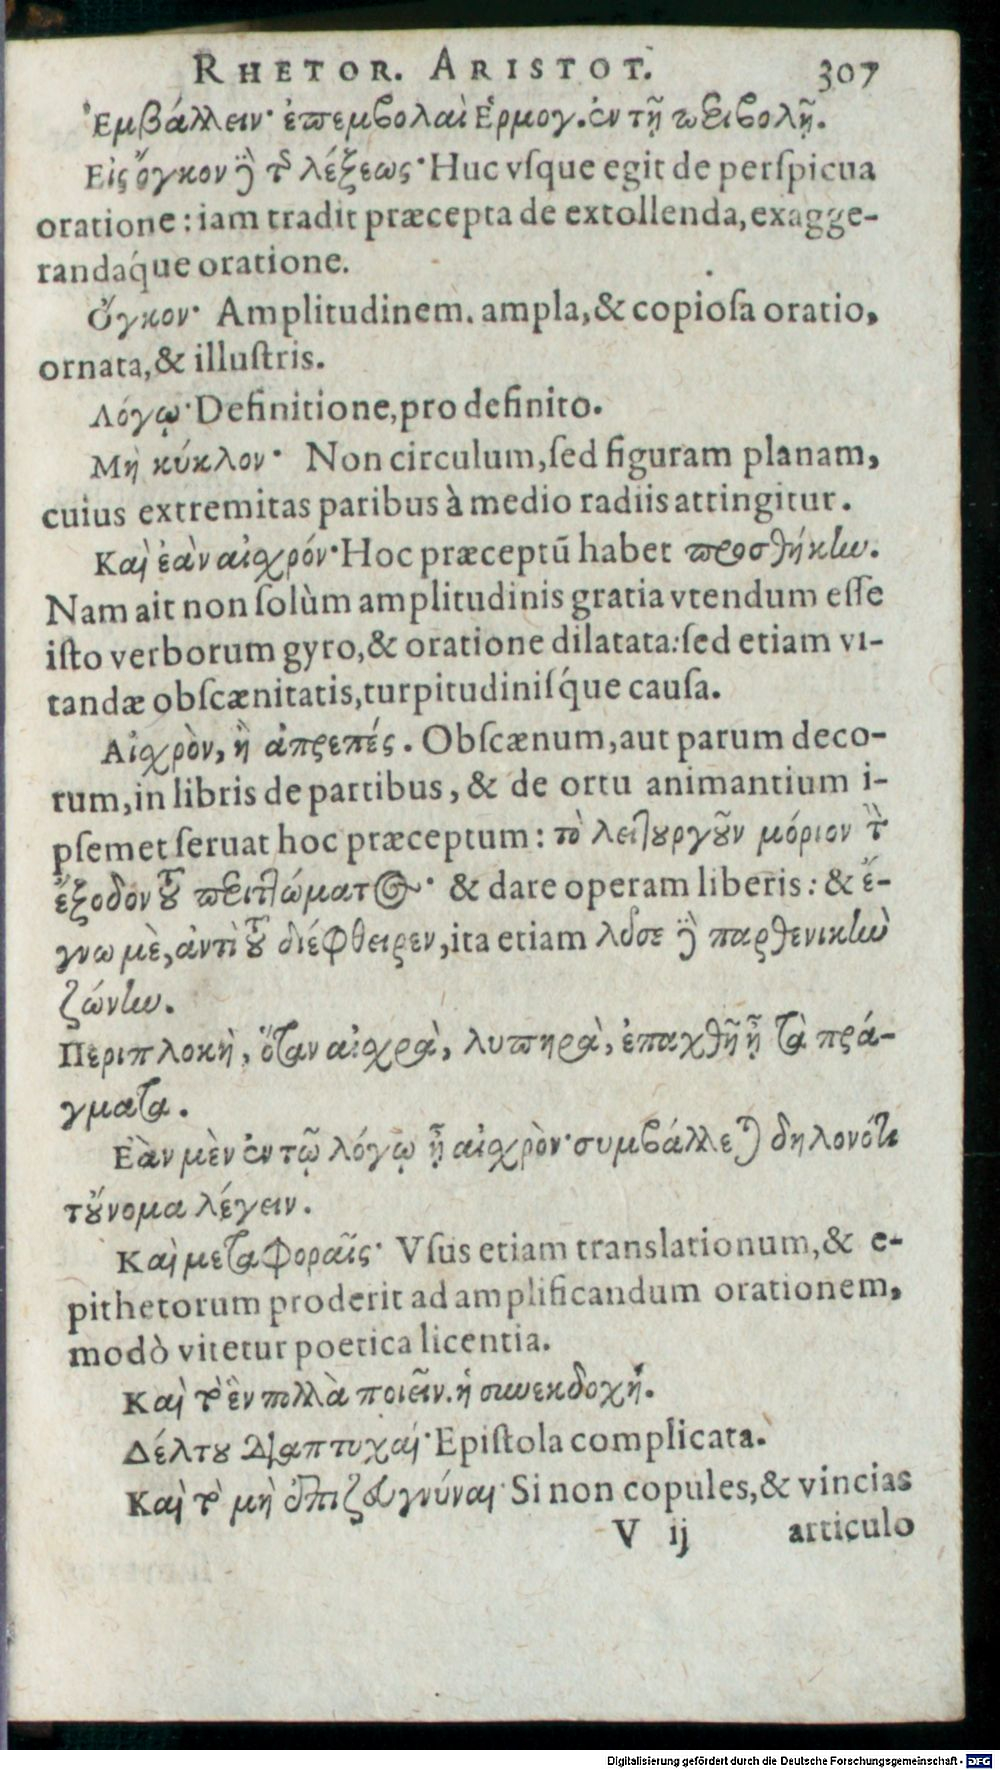 RHETOR. ARISTOT. 307
Ἐμβάλλειν· ἐπεμβολαὶ Ἑρμογ. ἐν τῇ περιβολῇ.
Εἰς ὄγκον ἢ τῆς λέξεως· Huc vſque egit de perſpicua
oratione: iam tradit præcepta de extollenda, exagge-
randáque oratione.
Ὄγκον· Amplitudinem. ampla, & copioſa oratio,
ornata, & illuſtris.
Λόγῳ· Definitione, pro definito.
Μὴ κύκλον· Non circulum, ſed figuram planam,
cuius extremitas paribus à medio radiis attingitur.
Καὶ ἐὰν αἰσχρόν· Hoc præceptū habet προσθήκην.
Nam ait non ſolùm amplitudinis gratia vtendum eſſe
iſto verborum gyro, & oratione dilatata: ſed etiam vi-
tandæ obſcænitatis, turpitudiniſq́ue cauſa.
Αἰσχρὸν, ἢ ἀπρεπές. Obſcænum, aut parum deco-
rum, in libris de partibus, & de ortu animantium i-
pſemet ſeruat hoc præceptum: τὸ λειτουργοῦν μόριον τὴν
ἔξοδον τοῦ περιττώματος· & dare operam liberis: & ἔ-
γνω μὲ, ἀντὶ τοῦ διέφθειρεν, ita etiam λῦσε παρθενικὴν
ζώνην.
Περιπλοκὴ, ὅταν αἰσχρὰ, λυπηρὰ, ἐπαχθῆ ᾖ τὰ πρά-
γματα.
Ἐὰν μὲν ἐν τῷ λόγῳ ᾖ αἰσχρὸν· συμβάλλεται δηλονότι
τοὔνομα λέγειν.
Καὶ μεταφοραῖς· Vſus etiam translationum, & e-
pithetorum proderit ad amplificandum orationem,
modò vitetur poetica licentia.
Καὶ τὸ ἓν πολλὰ ποιεῖν. ἡ συνεκδοχή.
Δέλτου διαπτυχαί· Epiſtola complicata.
Καὶ τὸ μὴ ἐπιζευγνύναι· Si non copules, & vincias
V ij articulo
Digitalisierung gefördert durch die Deutsche Forschungsgemeinschaft - DFG